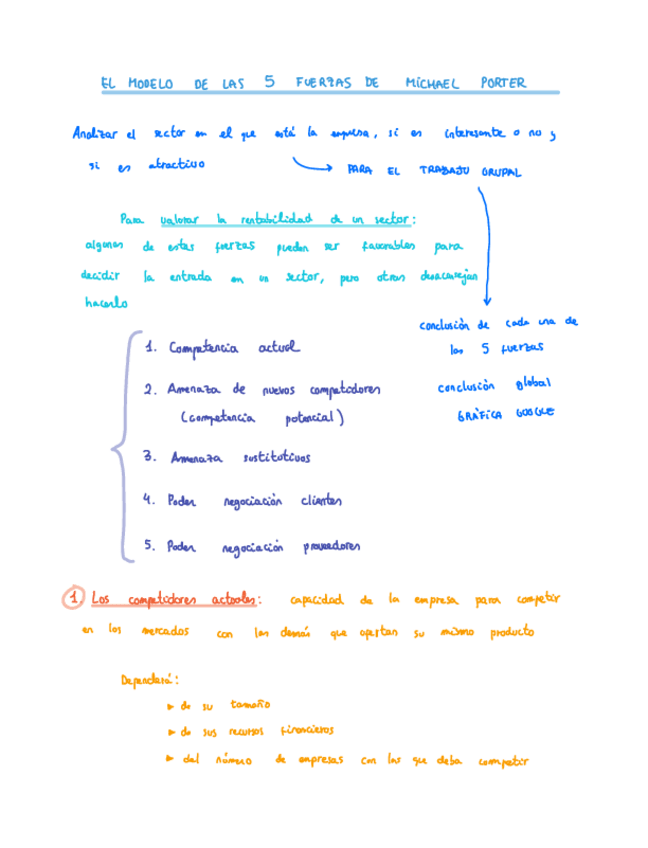 EL MODELO DE LAS 5 FUERZAS DE MICHAEL PORTER
Analizar el sector en el que está la empresa, si es interesante o no y
si es atractivo
PARA EL TRABAJO GRUPAL
Para valorar la rentabilidad de un sector:
algunas de estas fuerzas pueden ser favorables para
decidir la entrada en un sector, pero otras desaconsejan
hacerlo
conclusión de cada una de
las 5 fuerzas
conclusión global
GRÁFICA GOOGLE
1. Competencia actual
2. Amenaza de nuevos competidores
(competencia potencial)
3. Amenaza sustitutivos
4. Poder negociación clientes
5. Poder negociación proveedores
1. Los competidores actuales: capacidad de la empresa para competir
en los mercados con las demás que ofertan su mismo producto
Dependerá:
► de su tamaño
► de sus recursos financieros
► del número de empresas con las que deba competir